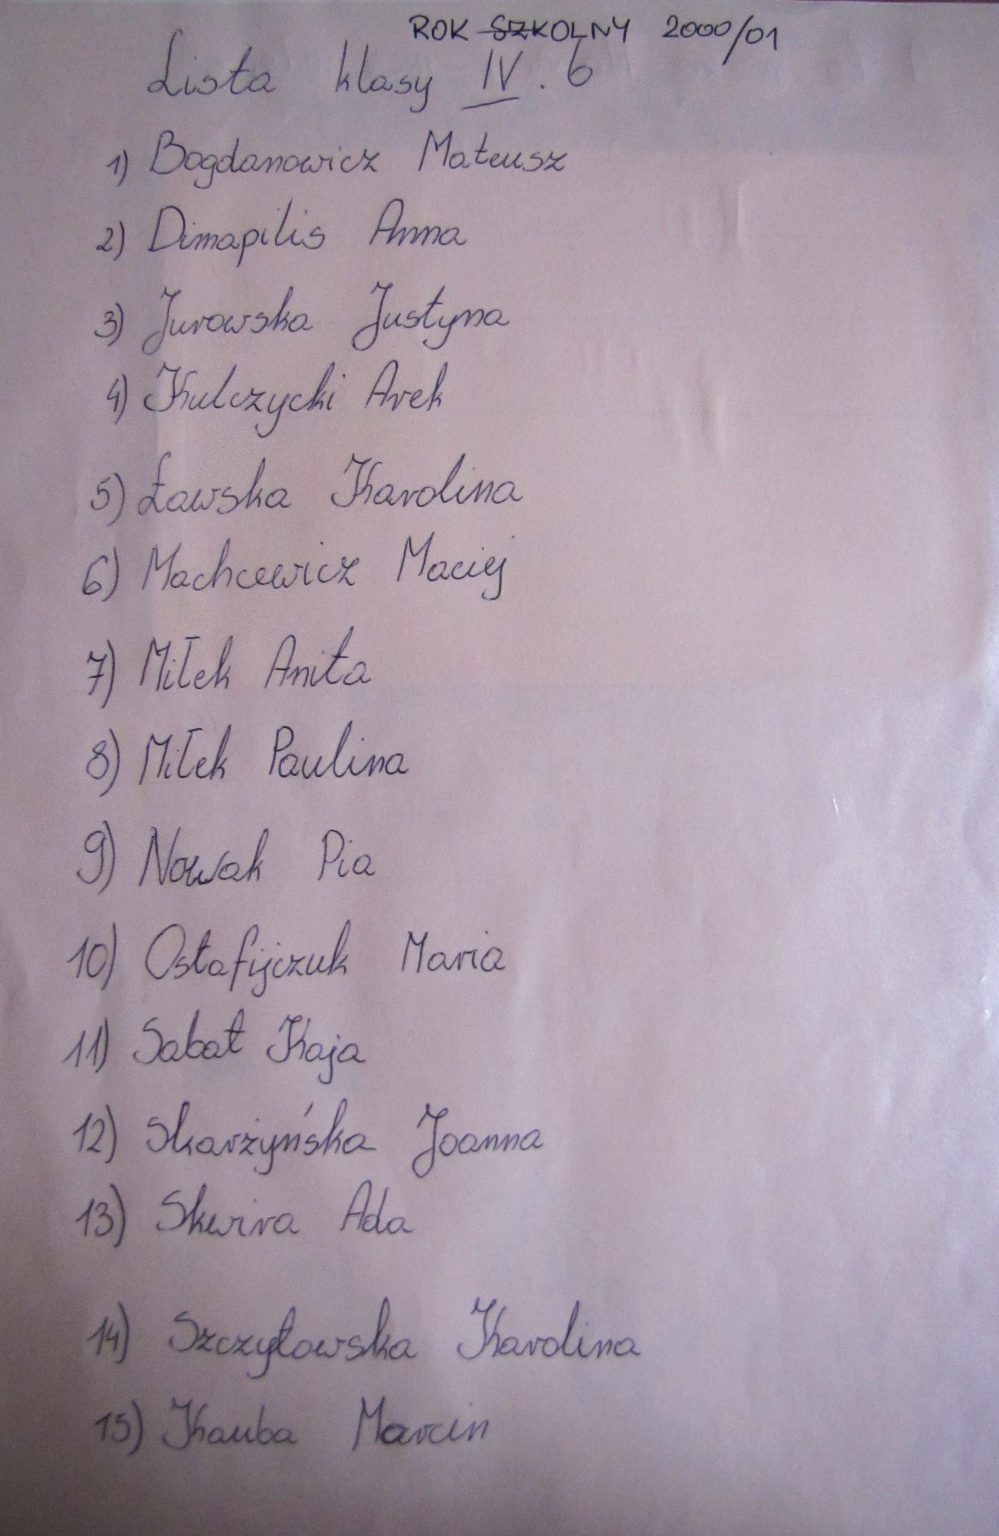 ROK SZKOLNY 2000/01
Lista klasy IV. 6
1) Bogdanowicz Mateusz
2) Dimapilis Anna
3) Jurowska Justyna
4) Kulczycki Arek
5) Ławska Karolina
6) Machcewicz Maciej
7) Miłek Anita
8) Miłek Paulina
9) Nowak Pia
10) Ostafijczuk Maria
11) Sabat Kaja
12) Skarżyńska Joanna
13) Skwira Ada
14) Szczytowska Karolina
15) Kauba Marcin